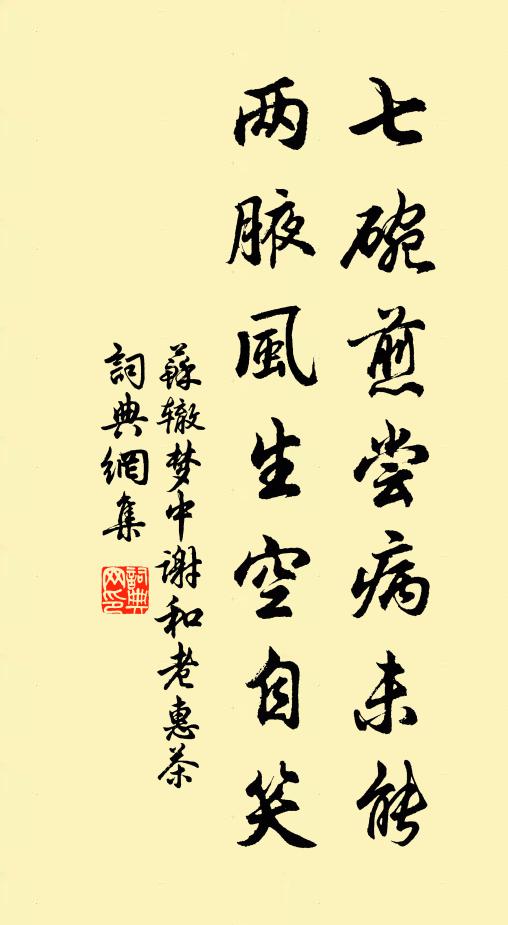 七碗煎尝病未能
两腋風生空自笑
蘇辙梦中谢和老惠茶
詞典網集
詞典网印